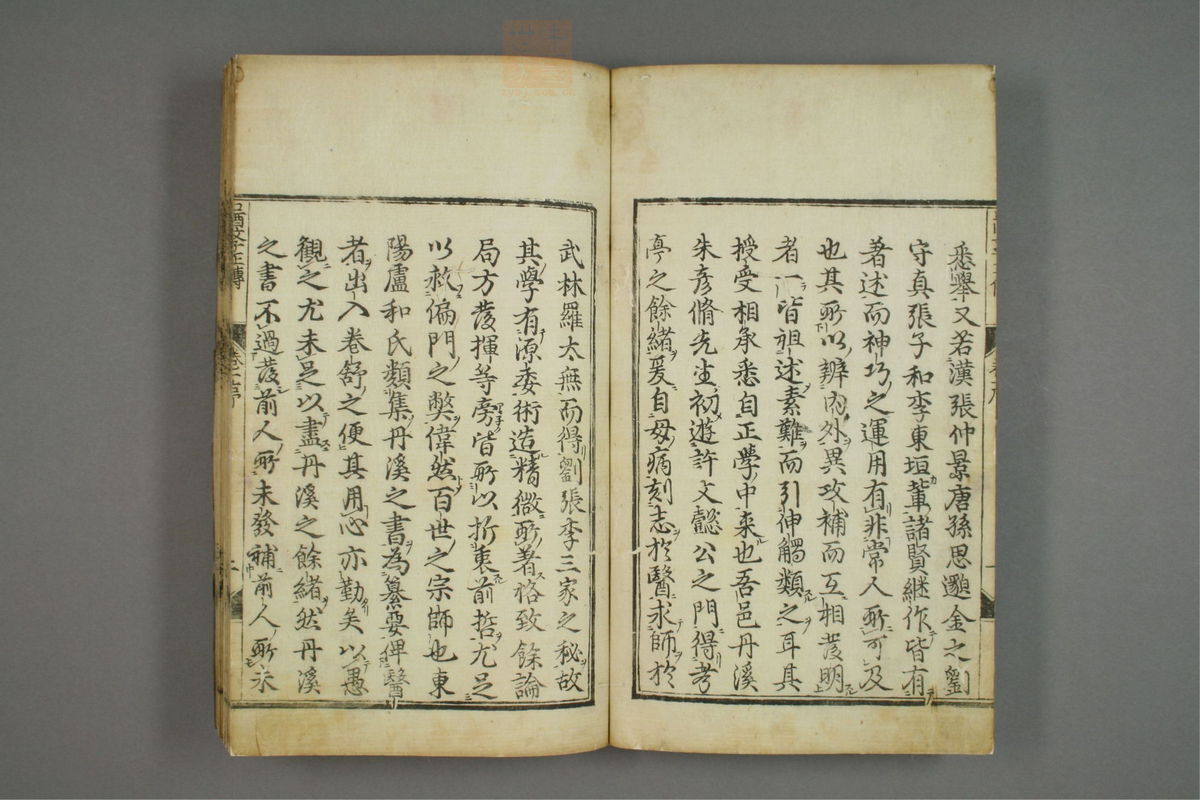 悉舉又若漢張仲景唐孫思邈金之劉
守真張子和李東垣輩諸賢継作皆有
著述而神巧之運用有非常人所可及
也其所以辨內外異攻補而互相發明
者一皆祖述素難而引伸觸類之耳其
授受相承悉自正學中来也吾邑丹溪
朱彦脩先生初遊許文懿公之門得考
亭之餘緒爰自母病刻志於醫求師於
武林羅太無而得劉張李三家之秘故
其學有源委術造精微所著格致餘論
局方發揮等旁皆所以折衷前哲尤足
以救偏門之弊偉然百世之宗師也東
陽盧和氏類集丹溪之書為纂要俾醫
者出入巻舒之便其用心亦勤矣以愚
觀之尤未足以盡丹溪之餘緒然丹溪
之書不過發前人所未發補前人所未
醫學正傳